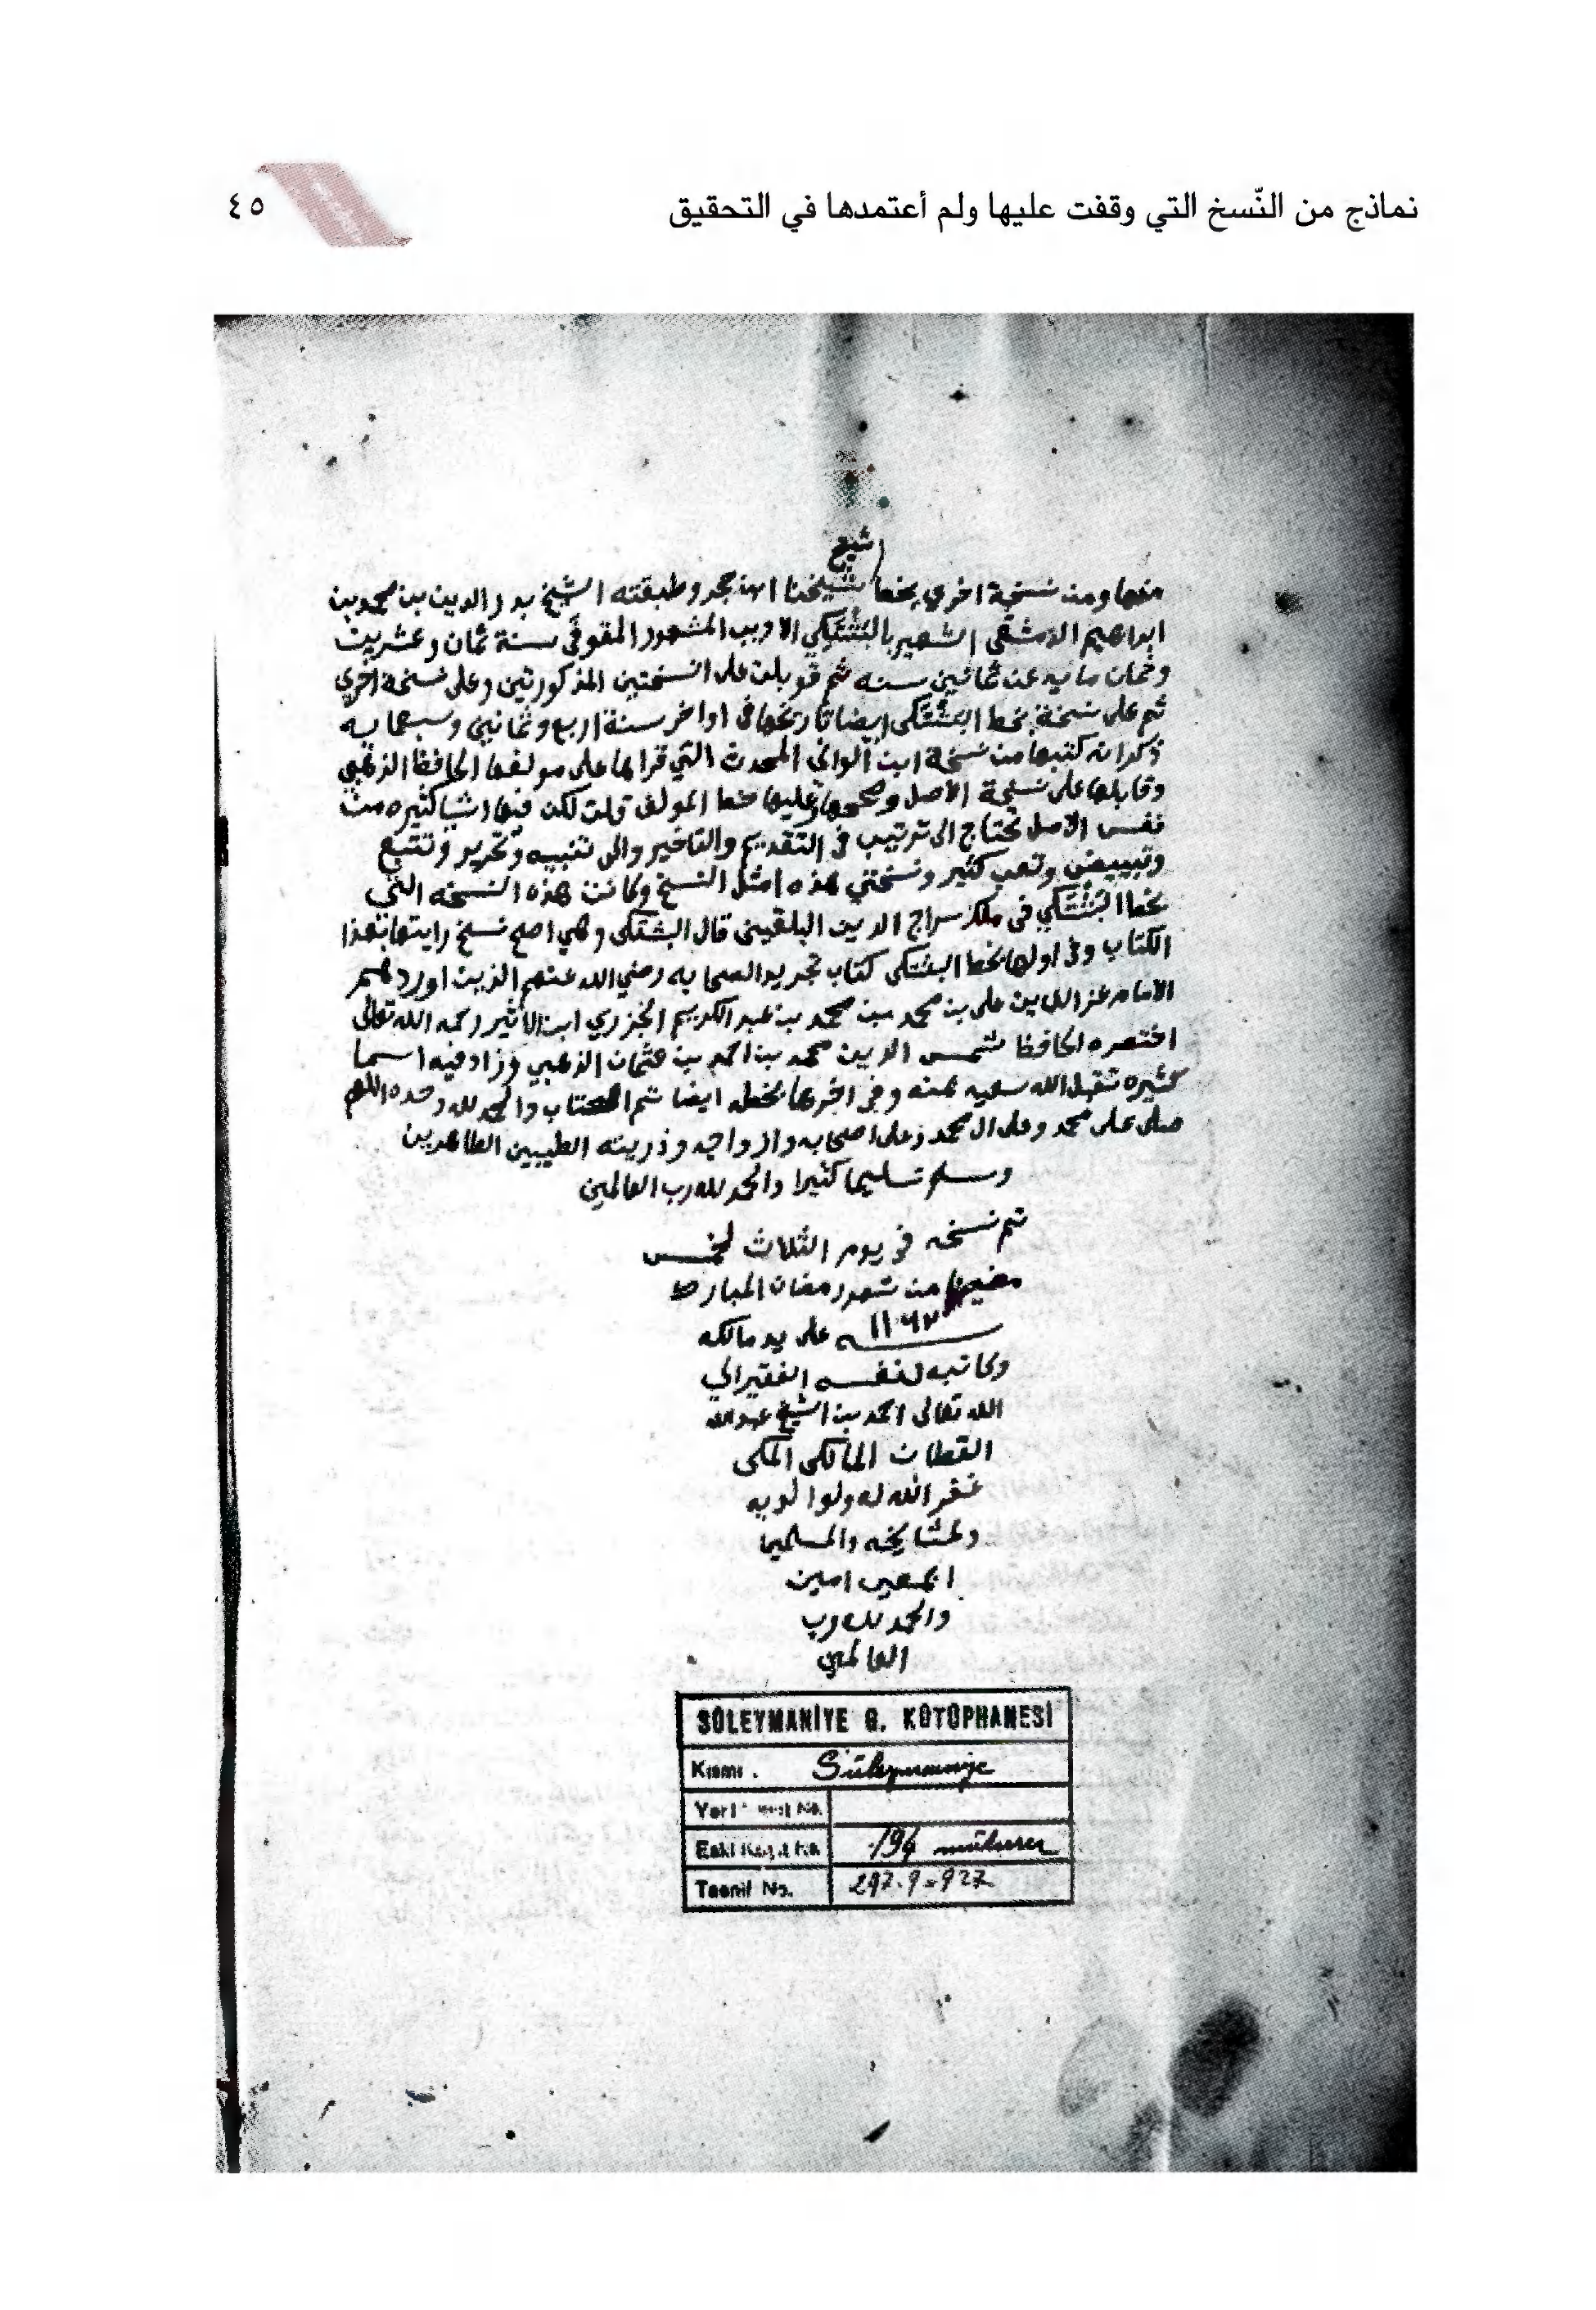 نماذج من النّسخ التي وقفت عليها ولم أعتمدها في التحقيق
٤٥
شيخ
منها ومن نسخة اخري بخط شيخنا ابن حجر وطبقته الشيخ بدر الدين بن محمد بن
ابراهيم الدمشقى الشهير بالبشتكي الاديب المشهور المتوفي سنة ثمان وعشرين
وثمان مايه عن ثمانين سنه ثم قوبلت على النسختين المذكورتين وعلى نسخة اخري
ثم على نسخة بخط البشتكى ايضا تاريخها في اواخر سنة اربع وثمانين وسبعمايه
ذكر انه كتبها من نسخة ابن الواني المحدث التي قراها على مولفها الحافظ الذهبي
وقابلها على نسخة الاصل وصححها وعليها خط المولف قلت لكن فيها اشيا كثيره من
نفس الاصل تحتاج الى ترتيب في التقديم والتاخير والى تنبيه وتحرير وتتبع
وتبييض وتعب كثير ونسختي هذه امثل النسخ وكانت هذه النسخه التي
بخط البشتكي في ملك سراج الدين البلقيني قال البشتكى وهي اصح نسخ رايتها بهذا
الكتاب وفي اولها بخط البشتكى كتاب تجريد الصحابه رضي الله عنهم الذين اوردهم
الامام عز الدين على بن محمد بن محمد بن عبد الكريم الجزري ابن الاثير رحمه الله تعالى
اختصره الحافظ شمس الدين محمد بن احمد بن عثمان الذهبي وزاد فيه اسما
كثيره تقبل الله سعيه بمنه وفي اخرها بخطه ايضا تم الكتاب والحمد لله وحده اللهم
صلى على محمد وعلى ال محمد وعلى اصحابه وازواجه وذريته الطيبين الطاهرين
وسلم تسليما كثيرا والحمد لله رب العالمين
تم نسخه في يوم الثلاث لخمس
مضين من شهر رمضان المبارك
سنه ١١٦٧ على يد مالكه
وكاتبه لنفسه الفقير الي
الله تعالى احمد بن الشيخ عبد الله
القطان المالكى المكى
غفر الله له ولوالديه
ولمشايخه والمسلمين
اجمعين امين
والحمد لله رب
العالمين
SÜLEYMANİYE G. KÜTÜPHANESİ
Kısmı . Süleymaniye
Yeni Kayıt No.
Eski Kayıt No. 194
Tasnif No. 297.9=927